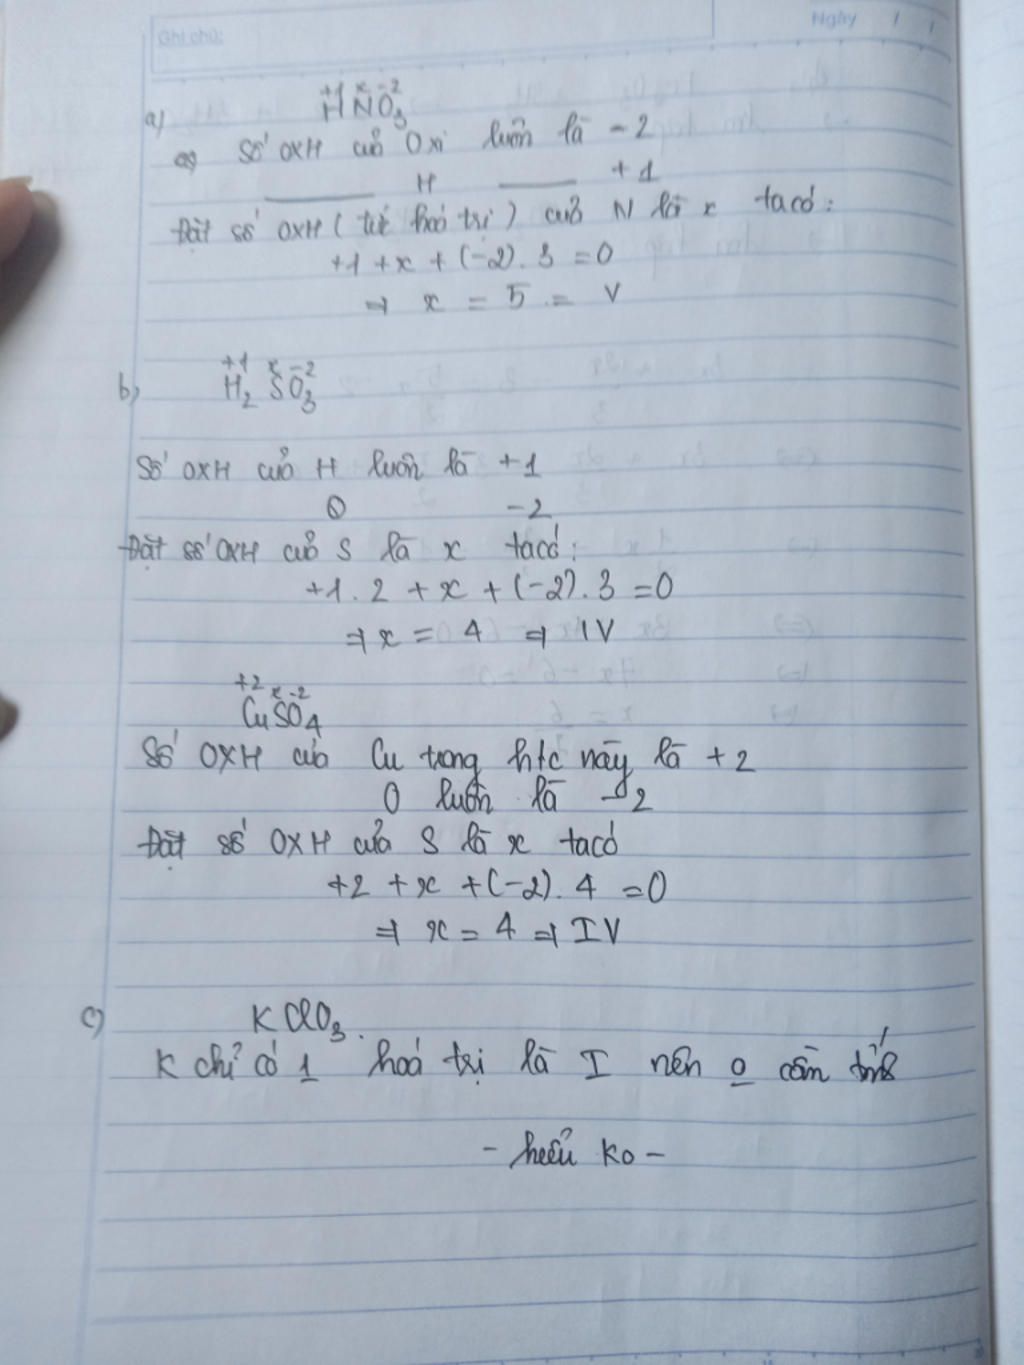 Ghi chú:
Ngày / /
a) +1 x -2
HNO3
a) Số OXH của Oxi luôn là -2
H +1
Đặt số OXH ( tức hoá trị ) của N là x ta có :
+1 + x + (-2) . 3 = 0
⇒ x = 5 = V
b) +1 x -2
H2SO3
Số OXH của H luôn là +1
O -2
Đặt số OXH của S là x ta có :
+1 . 2 + x + (-2) . 3 = 0
⇒ x = 4 ⇒ IV
+2 x -2
CuSO4
Số OXH của Cu trong h/c này là +2
O luôn là -2
Đặt số OXH của S là x ta có
+2 + x + (-2) . 4 = 0
⇒ x = 4 ⇒ IV
c) KClO3.
K chỉ có 1 hoá trị là I nên o cần tính
- hiểu ko -